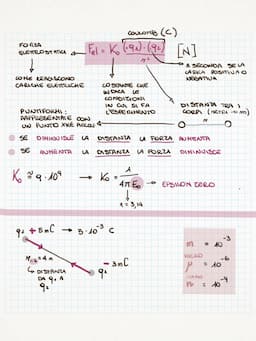 COULOMB (C)
FORZA
ELETTROSTATICA
Fel = K0 (±q1) · (±q2) / r² [N]
A SECONDA SE LA
CARICA POSITIVA O
NEGATIVA
COME REAGISCONO
CARICHE ELETTRICHE
COSTANTE CHE
INDICA LE
CONDIZIONI
IN CUI AVVIENE
L'ESPERIMENTO
DISTANZA TRA I
CORPI (METRI → m)
PUNTIFORMI:
RAPPRESENTATE CON
UN PUNTO
SE DIMINUISCE LA DISTANZA LA FORZA AUMENTA
SE AUMENTA LA DISTANZA LA FORZA DIMINUISCE
K0 ≅ 9·10⁹ → K0 = 1 / 4πE0 → EPSILON ZERO
π = 3,14
q1 + 5mC → 5·10⁻³ C
= 4m
→ DISTANZA
DA q1 A
q2
q2 - 3mC
m = 10⁻³
MICRO
μ = 10⁻⁶